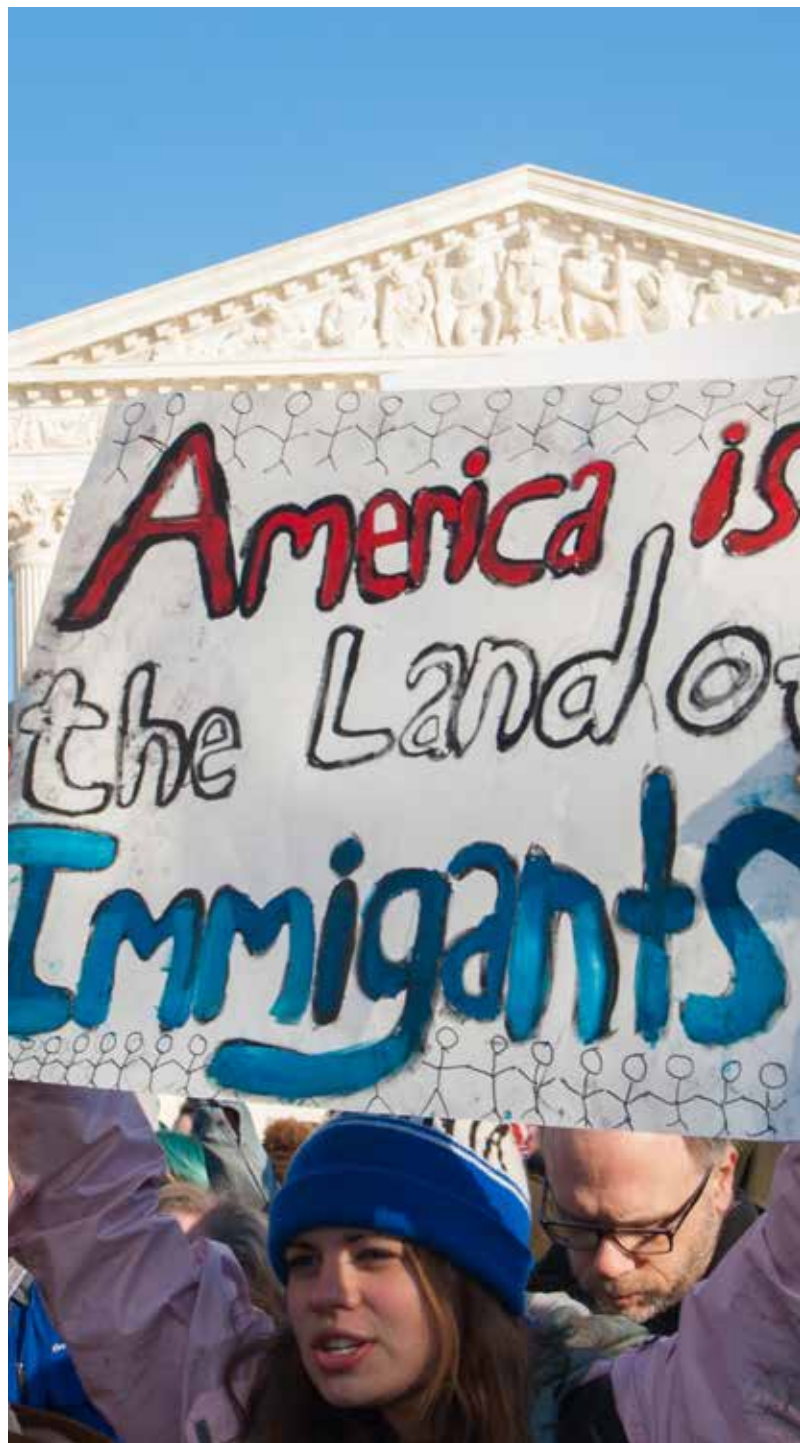 America is
the Land of
Immigants